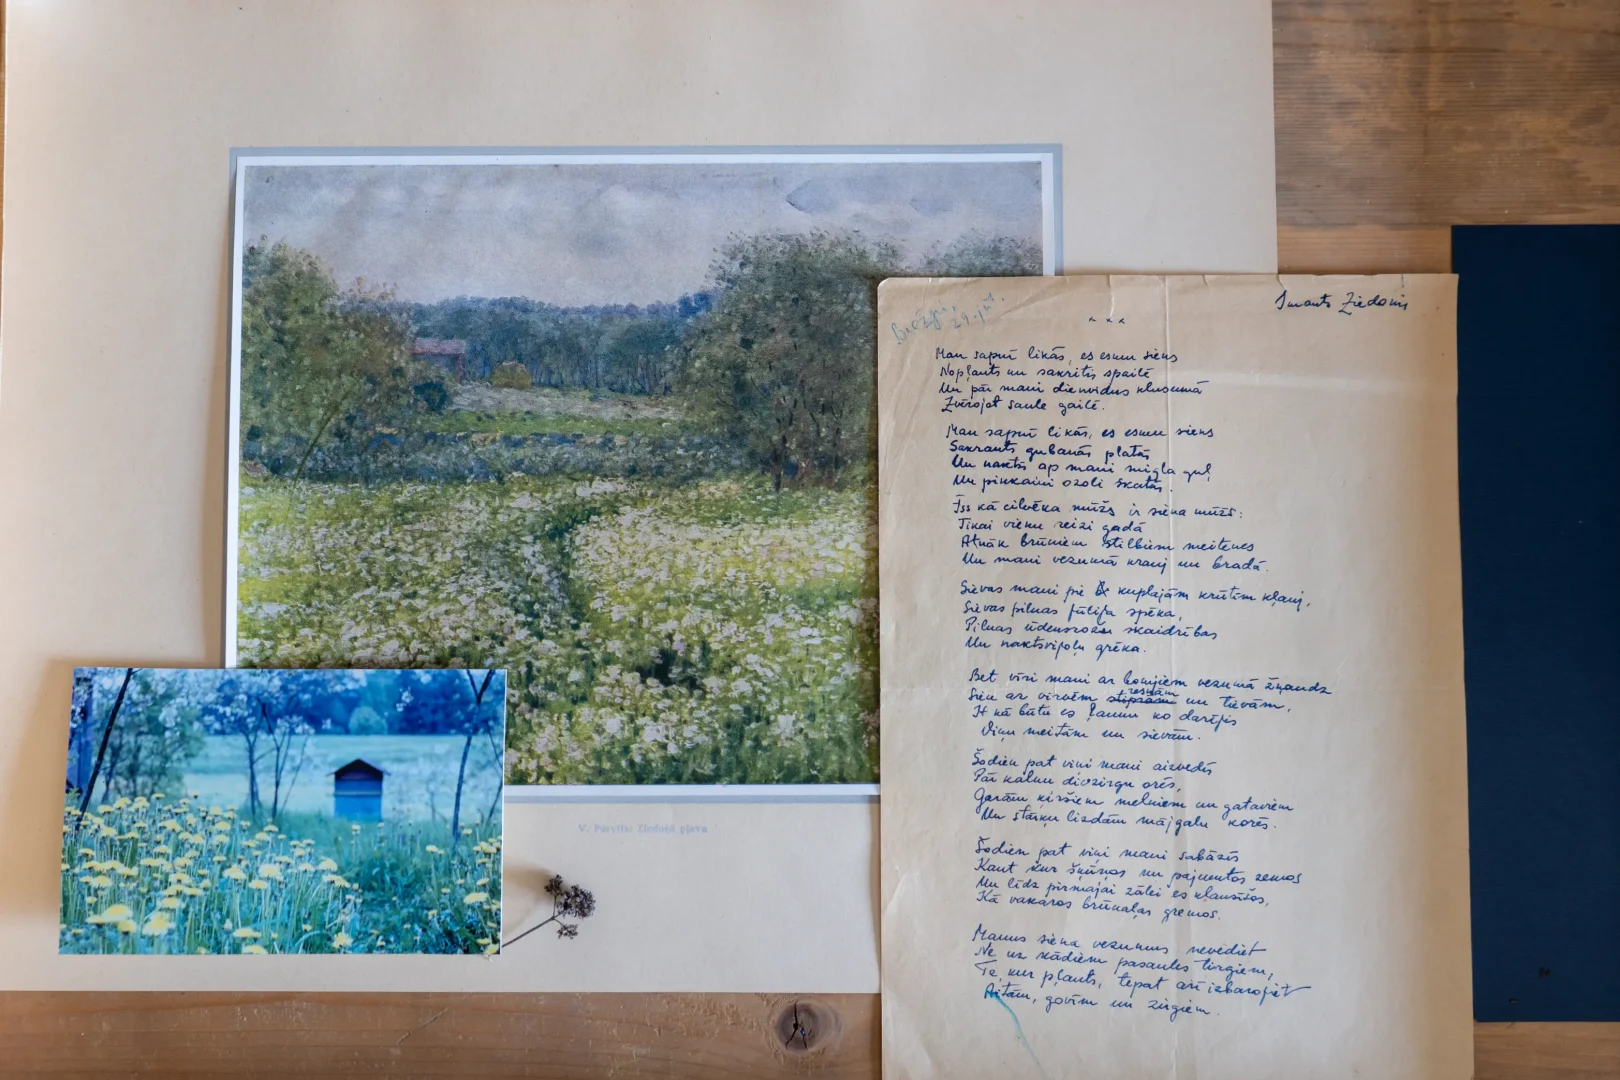 Imants Ziedonis
29. jūl.
Man sapnī likās, es esmu siens
Nopļauts un sakritis spailē
Un pār mani dienvidus klusumā
Zvērojot saule gailē.
Man sapnī likās, es esmu siens
Sakrauts gubanās platās
Un naktīs ap mani migla guļ
Un pinkaini ozoli skatās.
Īss kā cilvēka mūžs ir siena mūžs:
Tikai vienu reizi gadā
Atnāk brūniem stilbiem meitenes
Un mani vezumā krauj un bradā.
Sievas mani pie kuplajām krūtīm kļauj,
Sievas pilnas jūlija spēka,
Pilnas ūdensrožu skaidrības
Un naktsvijoļu grēka.
Bet vīri mani ar bomjiem vezumā žņaudz
resnām
Sien ar virvēm stiprām un tievām,
It kā būtu es ļaunu ko darījis
Viņu meitām un sievām.
Šodien pat viņi mani aizvedīs
Pār kalnu divzirgu orēs,
Garām ķiršiem melniem un gataviem
Un stārķu lizdām mājgalu korēs.
Šodien pat viņi mani sabāzīs
Kaut kur šķūņos un pajumtēs zemās
Un līdz pirmajai zālei es klausīšos,
Kā vakaros brūnaļas gremos.
Manus siena vezumus nevediet
Ne uz kādiem pasaules tirgiem,
Te, kur pļauts, tepat arī izbarojiet
Aitām, govīm un zirgiem.
V. Purvītis Ziedošā pļava